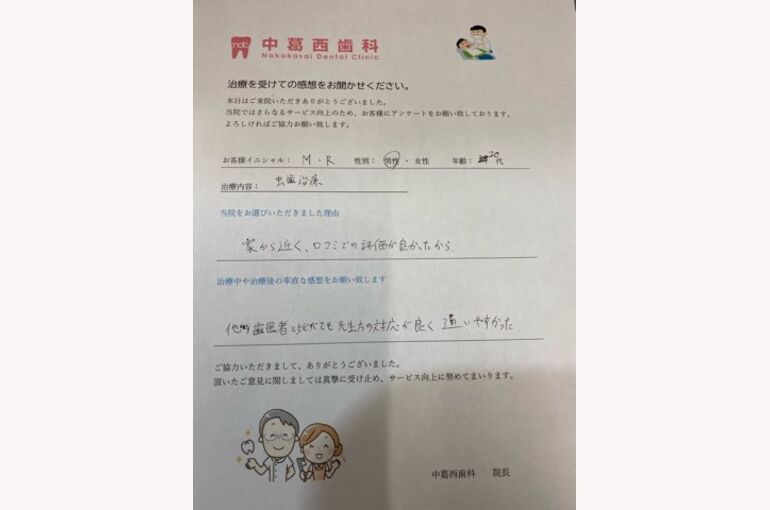 mdc 中葛西歯科
Nakakasai Dental Clinic
治療を受けての感想をお聞かせください。
本日はご来院いただきありがとうございました。
当院ではさらなるサービス向上のため、お客様にアンケートをお願い致しております。
よろしければご協力お願い致します。
お客様イニシャル： M・R 性別： 男性 ・ 女性 年齢： 20代
治療内容： 虫歯治療
当院をお選びいただきました理由
家から近く、口コミでの評価が良かったから
治療中や治療後の率直な感想をお願い致します
他の歯医者と比べても先生方の対応が良く 通いやすかった
ご協力いただきまして、ありがとうございました。
頂いたご意見に関しましては真摯に受け止め、サービス向上に努めてまいります。
中葛西歯科 院長